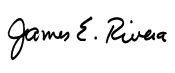 James E. Rivera